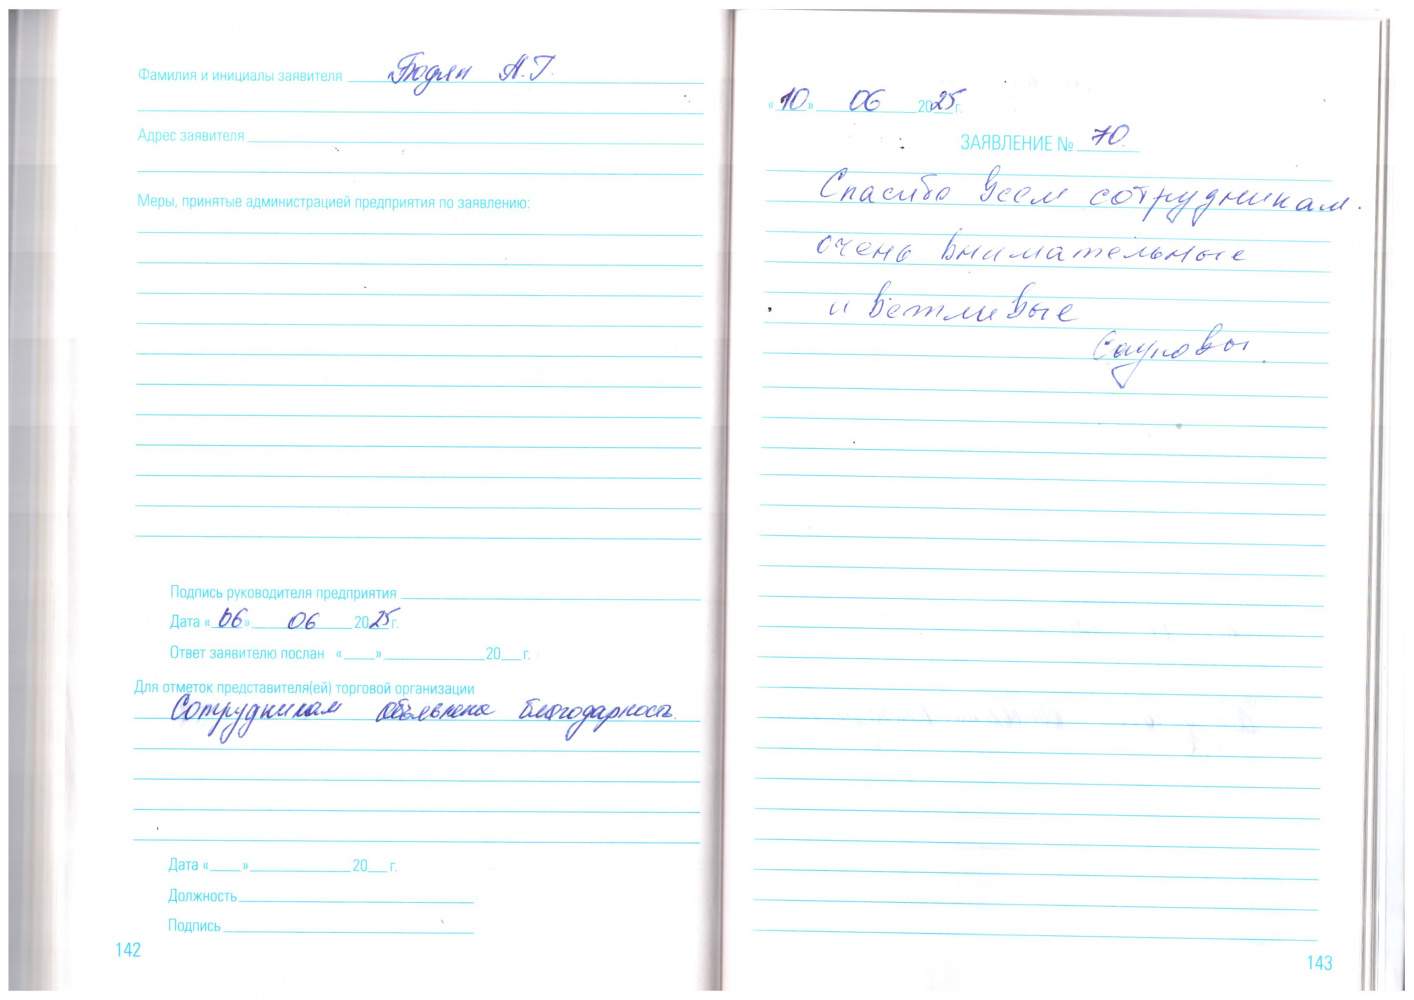 Фамилия и инициалы заявителя Бодян А.Г.
Адрес заявителя
Меры, принятые администрацией предприятия по заявлению:
Подпись руководителя предприятия
Дата «06» 06 2025 г.
Ответ заявителю послан « » 20 г.
Для отметок представителя(ей) торговой организации
Сотрудникам объявлена благодарность.
Дата « » 20 г.
Должность
Подпись
142
«10» 06 2025 г.
ЗАЯВЛЕНИЕ № 70.
Спасибо всем сотрудникам.
очень внимательные
и вежливые
143